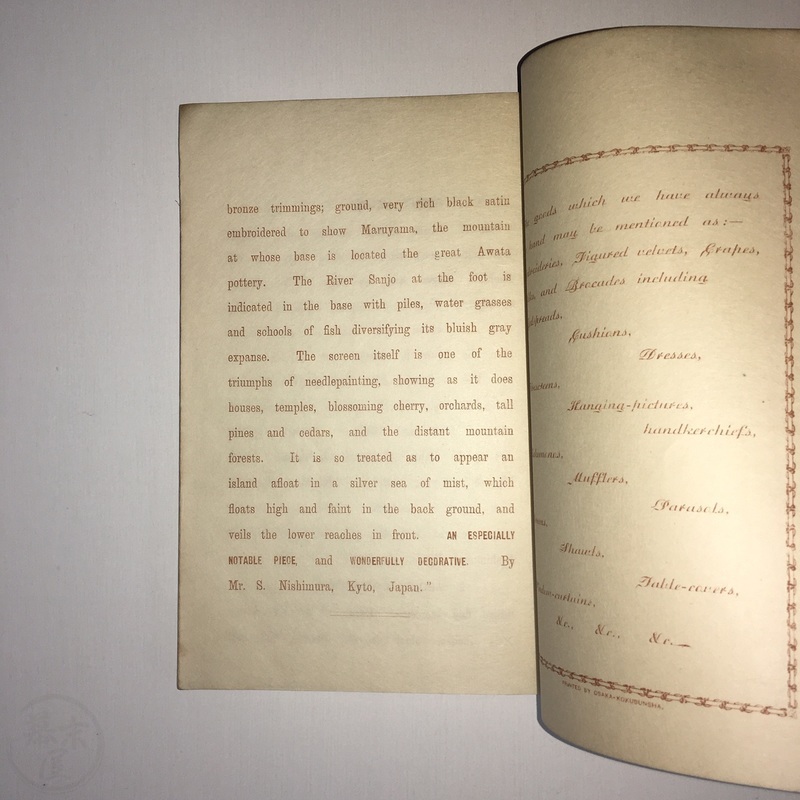 bronze trimmings; ground, very rich black satin
embroidered to show Maruyama, the mountain
at whose base is located the great Awata
pottery. The River Sanjo at the foot is
indicated in the base with piles, water grasses
and schools of fish diversifying its bluish gray
expanse. The screen itself is one of the
triumphs of needlepainting, showing as it does
houses, temples, blossoming cherry, orchards, tall
pines and cedars, and the distant mountain
forests. It is so treated as to appear an
island afloat in a silver sea of mist, which
floats high and faint in the back ground, and
veils the lower reaches in front. AN ESPECIALLY
NOTABLE PIECE, and WONDERFULLY DECORATIVE. By
Mr. S. Nishimura, Kyto, Japan."
goods which we have always
hand may be mentioned as:—
Figured velvets, Crapes,
and Brocades including
Cushions,
Dresses,
Hanging-pictures,
handkerchiefs,
Mufflers,
Parasols,
Shawls,
Table-covers,
&c., &c., &c.—
PRINTED BY OSAKA-KOKUBUNSHA.